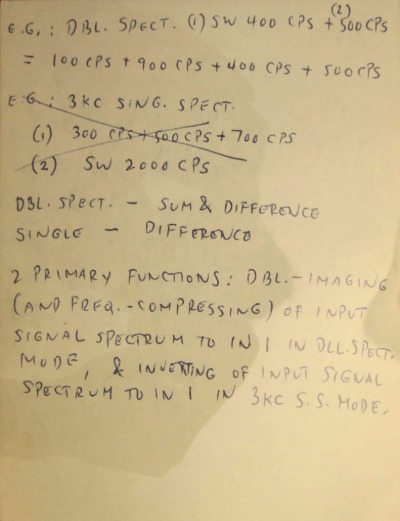 E.G.: DBL. SPECT. (1) SW 400 CPS + (2) 500 CPS
= 100 CPS + 900 CPS + 400 CPS + 500 CPS
E.G.: 3KC SING. SPECT.
(1) 300 CPS + 500 CPS + 700 CPS
(2) SW 2000 CPS
DBL. SPECT. - SUM & DIFFERENCE
SINGLE - DIFFERENCE
2 PRIMARY FUNCTIONS: DBL.-IMAGING
(AND FREQ.-COMPRESSING) OF INPUT
SIGNAL SPECTRUM TO IN 1 IN DLL. SPECT.
MODE, & INVERTING OF INPUT SIGNAL
SPECTRUM TO IN 1 IN 3KC S.S. MODE.